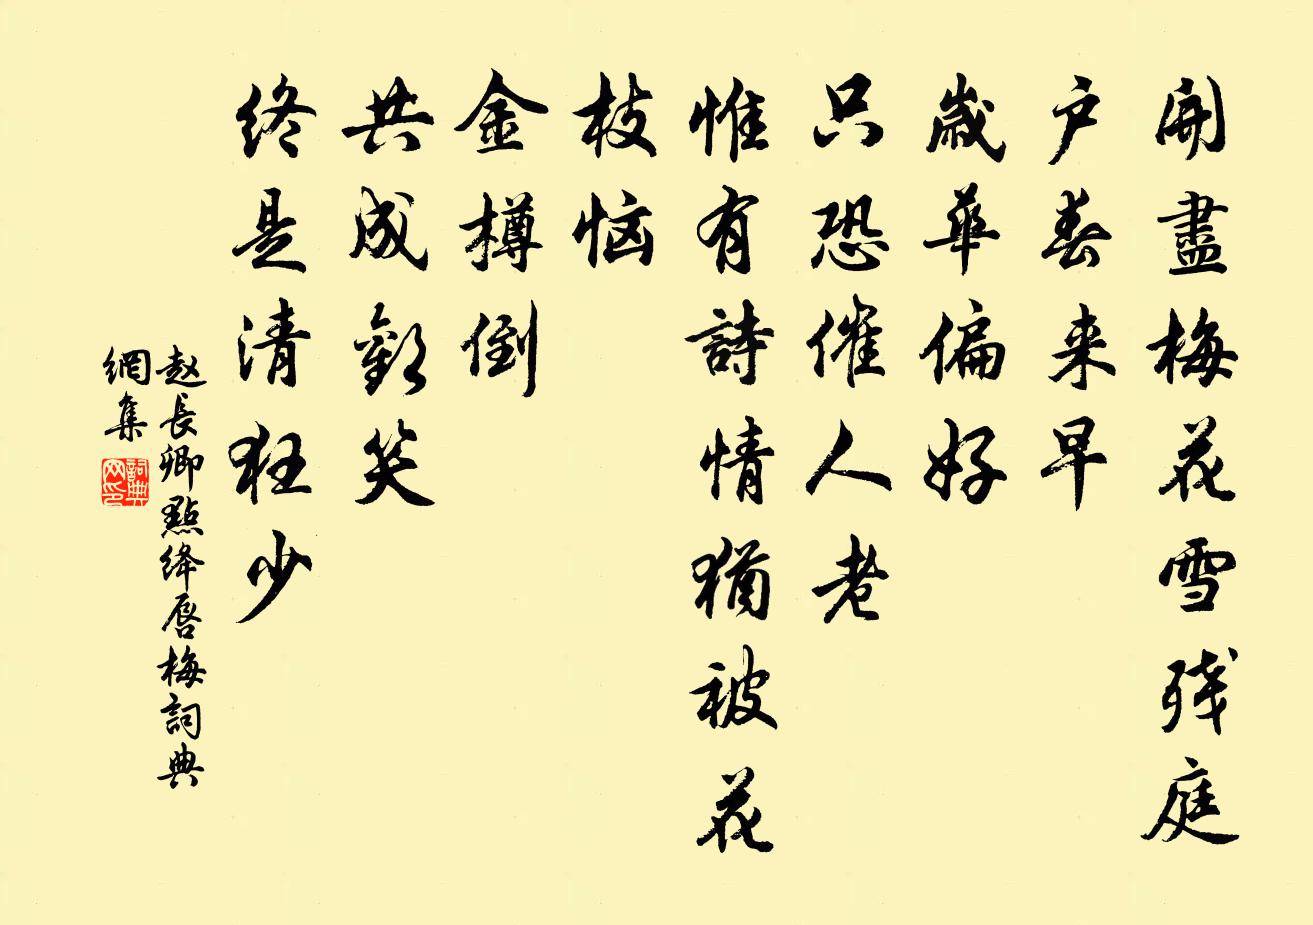 開盡梅花雪残庭
户春来早
歲華偏好
只恐催人老
惟有詩情猶被花
枝恼
金樽倒
共成歡笑
終是清狂少
赵長卿點绛唇梅詞典
網集
詞典網印